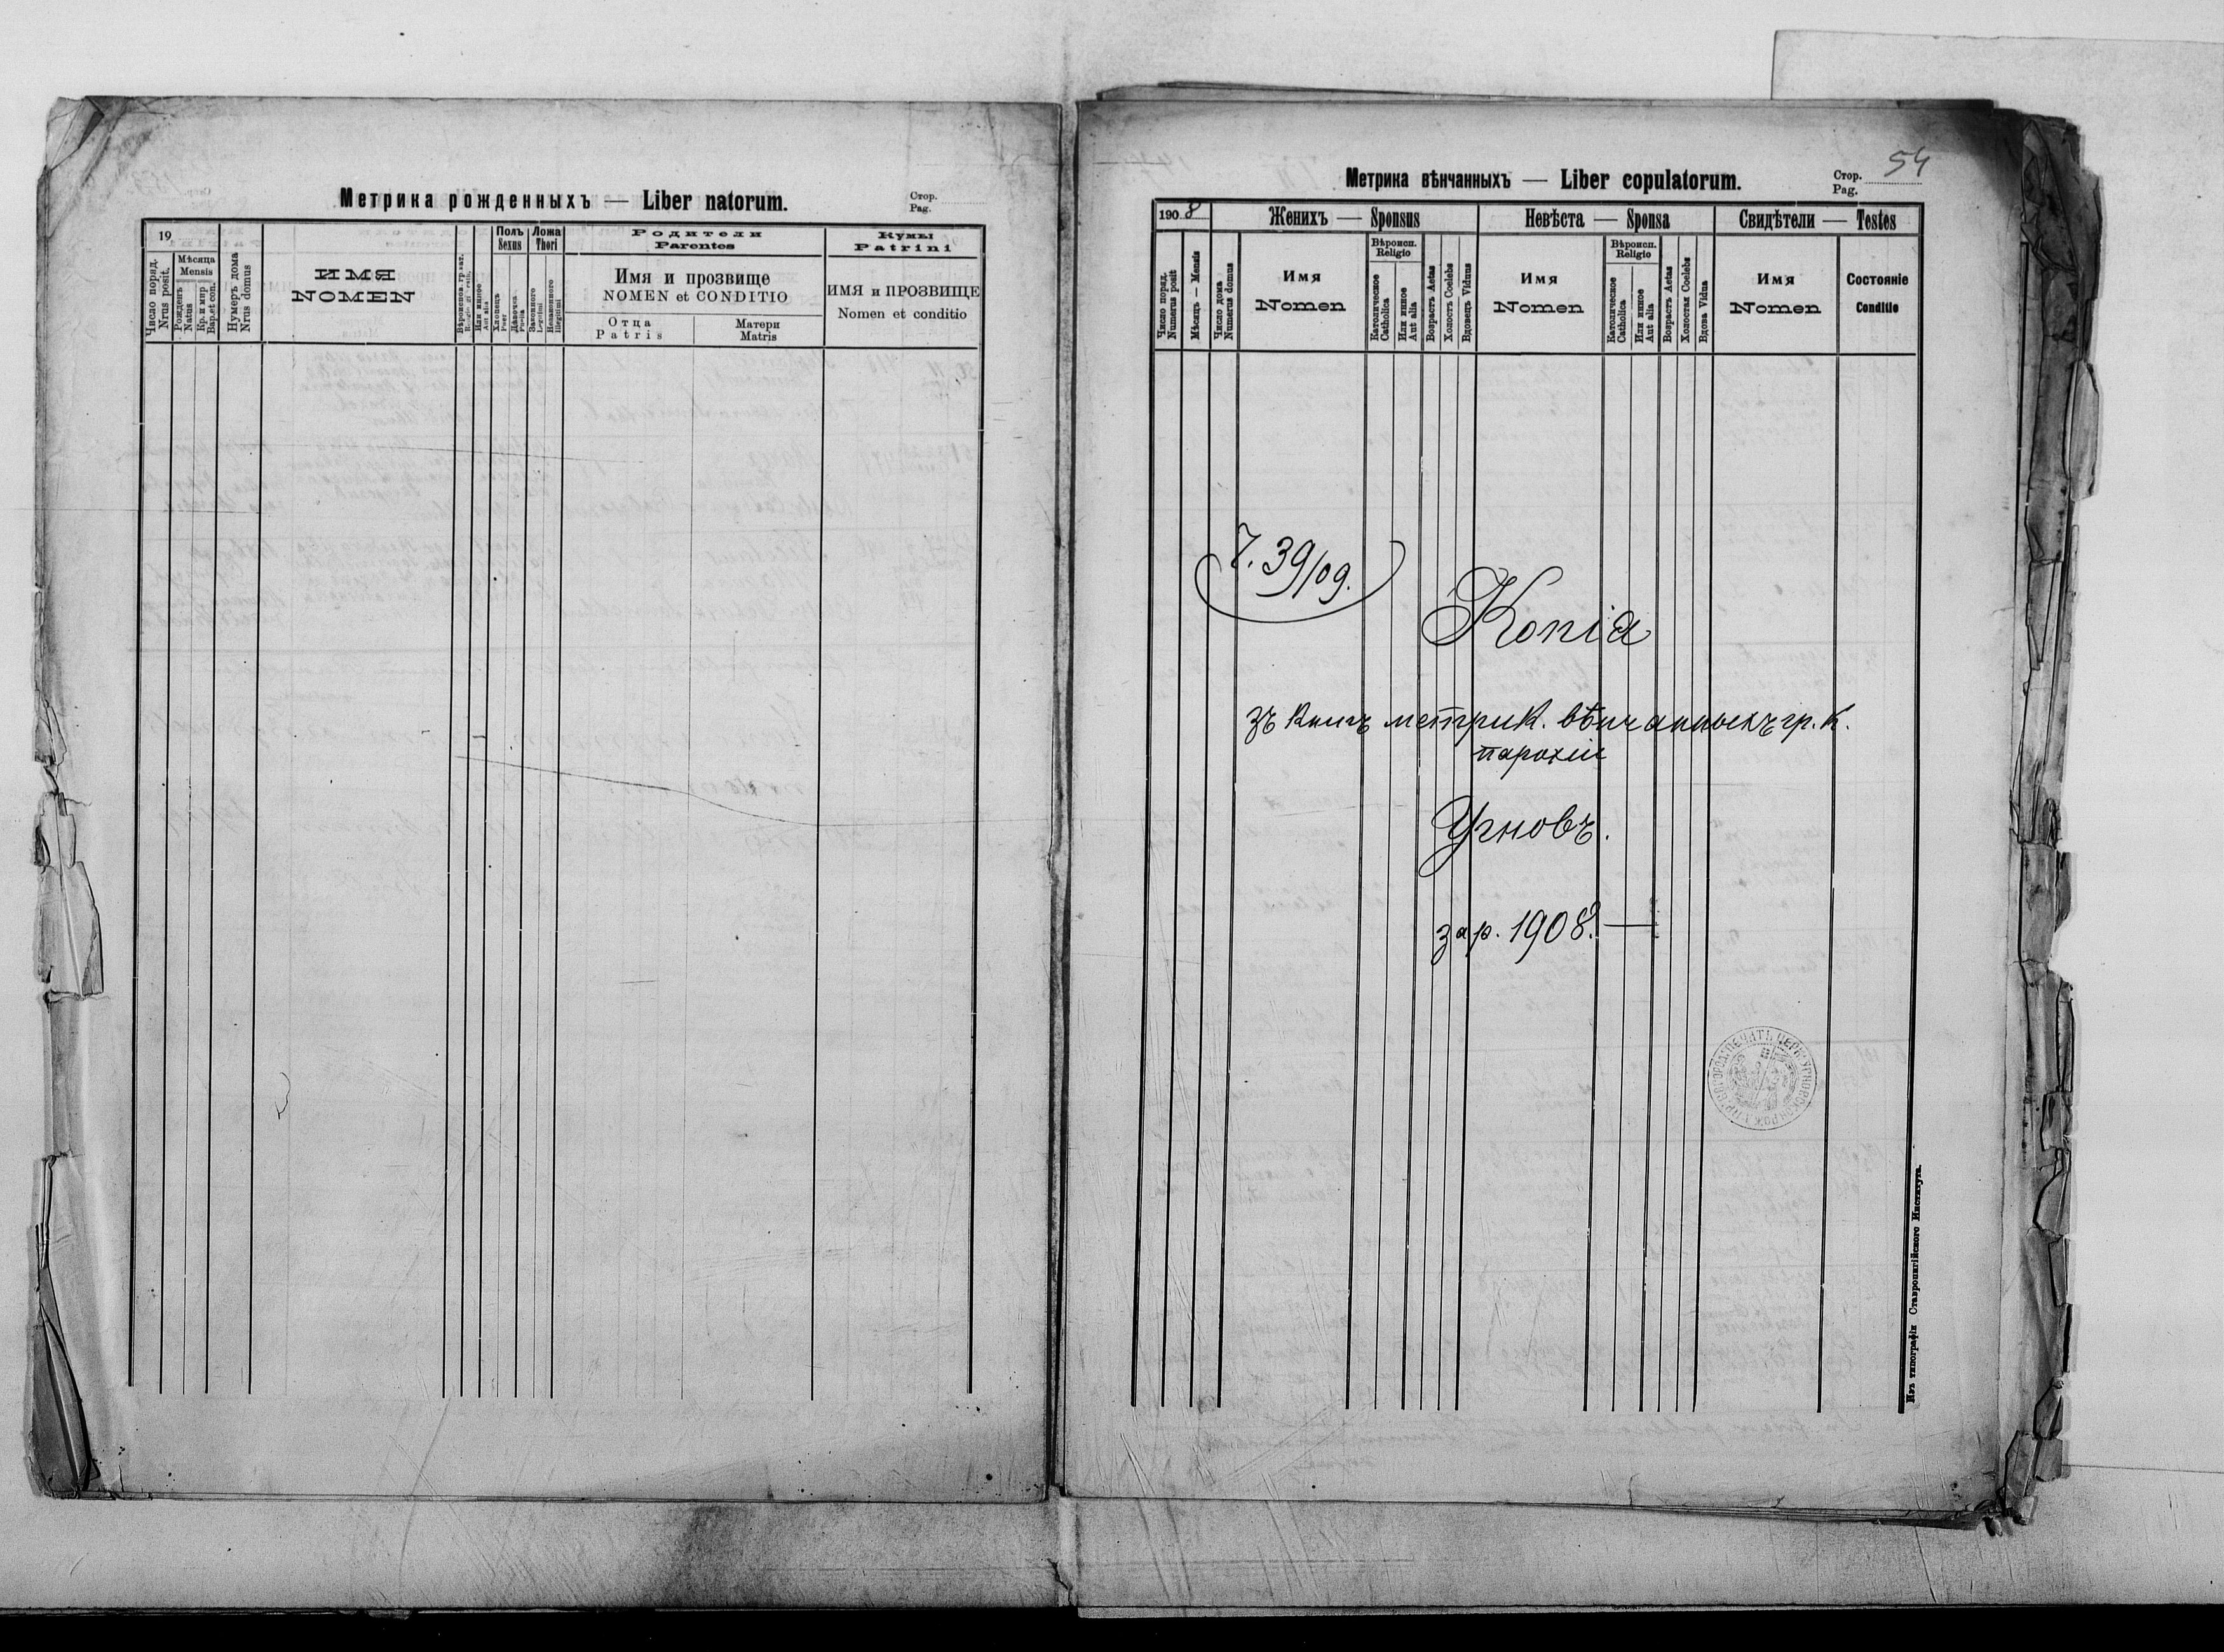 Метрика рожденныхъ — Liber natorum.
Стор.
Pag.
19
Число поряд.
Nrus posit.
Мѣсяца
Mensis
Рожденъ
Natus
Кр. и мир.
Bap. et con.
Нумеръ дома
Nrus domus
ИМЯ
NOMEN
Или инное
Aut alia
Полъ
Sexus
Хлопець
Puer
Дѣвочка
Puella
Ложа
Thori
Законного
Legitimi
Незаконного
Illegitimi
Родители
Parentes
Имя и прозвище
NOMEN et CONDITIO
Отца
Patris
Матери
Matris
Кумы
Patrini
ИМЯ и ПРОЗВИЩЕ
Nomen et conditio
Метрика вѣнчанныхъ — Liber copulatorum.
Стор.
Pag.
54
1908
Число поряд.
Numerus posit
Мѣсяцъ — Mensis
Число дома
Numerus domus
Женихъ — Sponsus
Имя
Nomen
Вѣроисп.
Religio
Католическое
Catholica
Или инное
Aut alia
Возрастъ Aetas
Холостъ Coelebs
Вдовецъ Viduus
Невѣста — Sponsa
Имя
Nomen
Вѣроисп.
Religio
Католическое
Catholica
Или инное
Aut alia
Возрастъ Aetas
Холостая Coelebs
Вдова Vidua
Свидѣтели — Testes
Имя
Nomen
Состояніе
Conditio
Ч. 39/09.
Копіа
зъ книгъ метрик. вѣнчанныхъ гр. к.
парохіи
Угновъ.
за р. 1908. —
Изъ типографіи Ставропигійского Института.